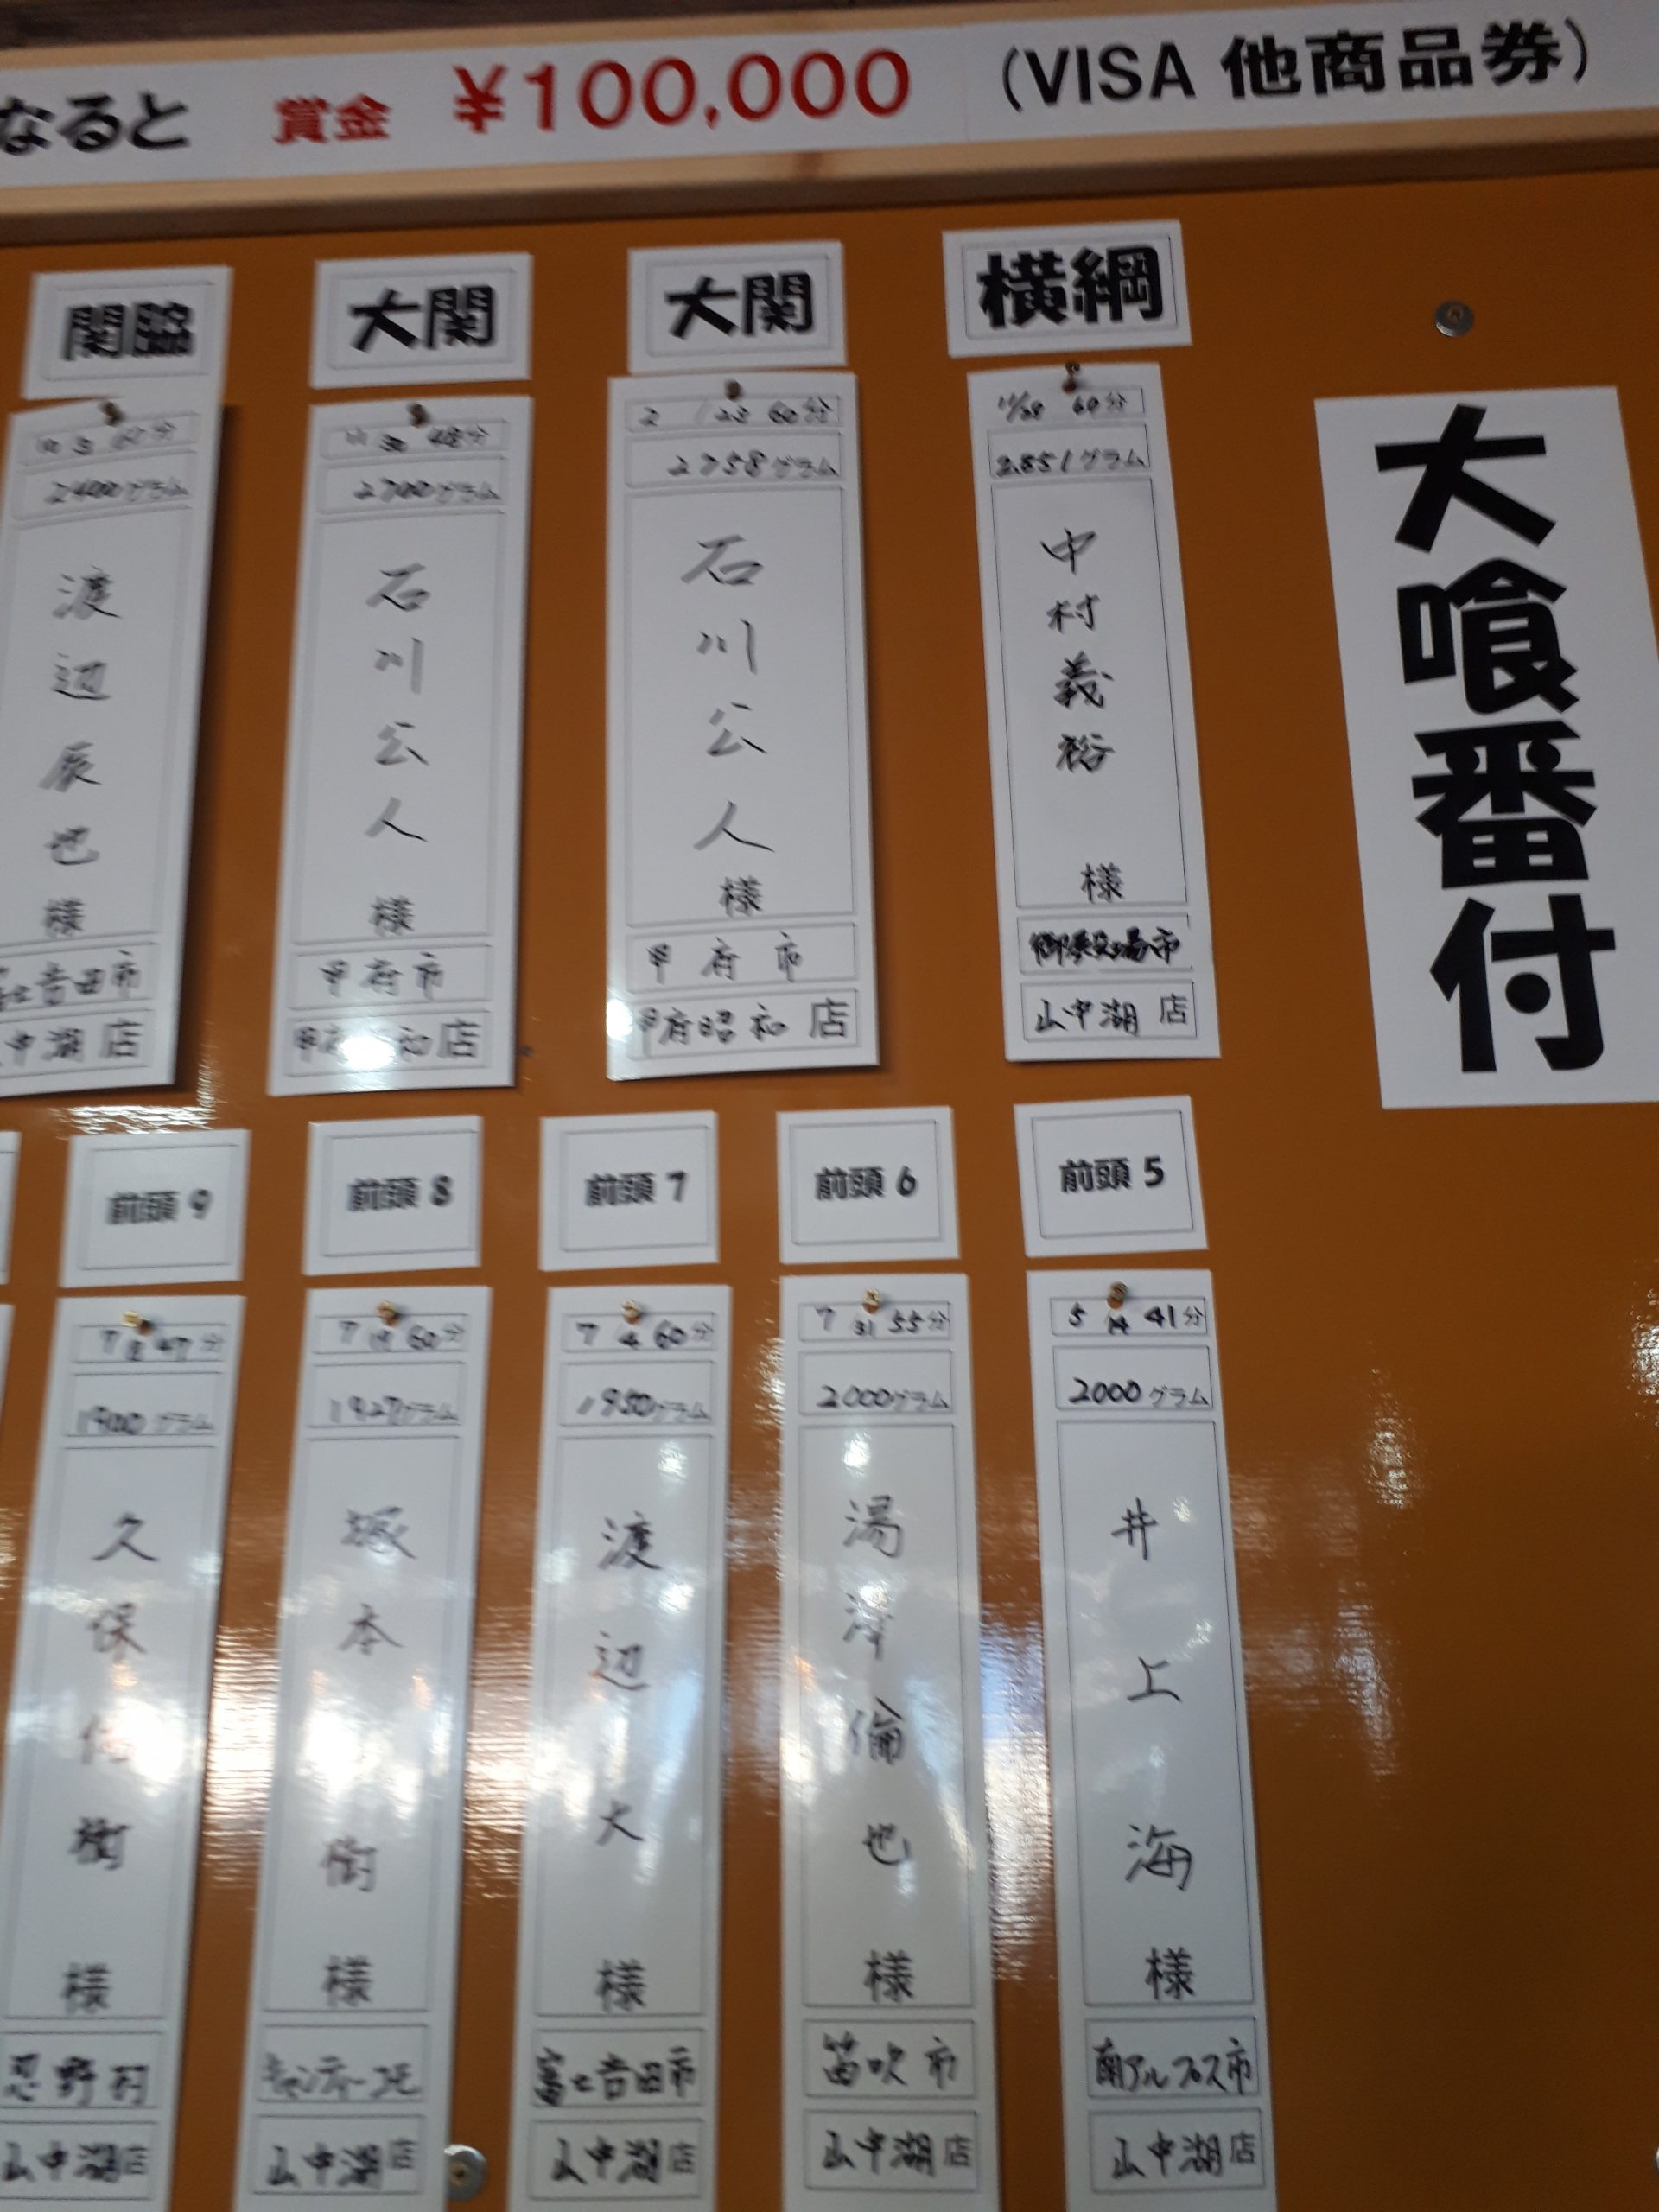 なると 賞金 ¥100,000 (VISA 他商品券)
大喰番付
横綱
11/28 60分
2.851グラム
中村義裕 様
御殿場市
山中湖 店
大関
2 /23 60分
2758グラム
石川公人 様
甲府市
甲府昭和 店
大関
11 30 48分
2700グラム
石川公人 様
甲府市
甲府 和 店
関脇
60分
2400グラム
渡辺辰也 様
士吉田市
中湖 店
前頭 5
5 14 41分
2000グラム
井上海 様
南アルプス市
山中湖店
前頭 6
7 31 55分
2000グラム
湯澤倫也 様
笛吹市
山中湖店
前頭 7
7 4 60分
1950グラム
渡辺大 様
富士吉田市
山中湖店
前頭 8
7 60分
1927グラム
塚本 様
山中湖店
前頭 9
7 47分
1900グラム
久保 樹 様
忍野村
山中湖店